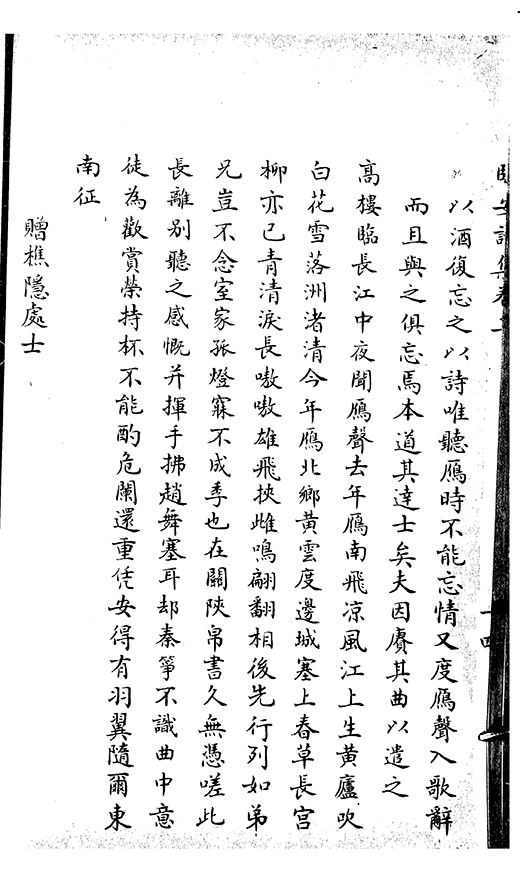 臨安詩集卷二
十四
以酒復忘之以詩唯聽鴈時不能忘情又度鴈聲入歌辭
而且與之俱忘焉本道其達士矣夫因賡其曲以遣之
高樓臨長江中夜聞鴈聲去年鴈南飛凉風江上生黄蘆吹
白花雪落洲渚清今年鴈北鄉黄雲度邊城塞上春草長宫
柳亦已青清淚長嗷嗷雄飛挾雌鳴翩翻相後先行列如弟
兄豈不念室家孤燈寐不成季也在關陜帛書久無憑嗟此
長離别聽之感慨并揮手拂趙舞塞耳却秦箏不識曲中意
徒為歡賞榮持杯不能酌危闌還重凭安得有羽翼隨爾東
南征
贈樵隱處士